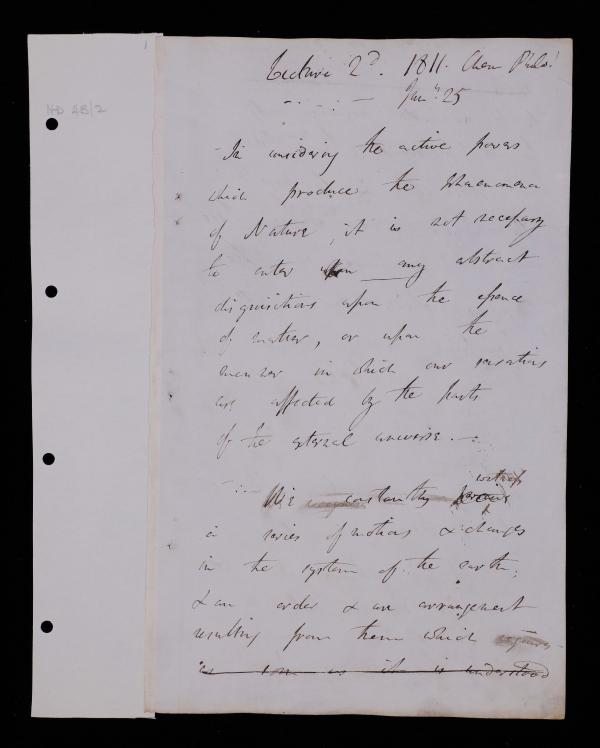 HD 4B/2
1
Lecture 2d. 1811. Chem Philos!
Jany 25
In considering the active powers
which produce the phaenomena
of Nature, it is not necessary
to enter upon any abstract
disquisitions upon the essence
of matter, or upon the
manner in which our sensations
are affected by the parts
of the external universe. —
witness
We constantly perceive
a series of motions & changes
in the system of the earth;
& an order & an arrangement
resulting from them which
as soon as it is understood